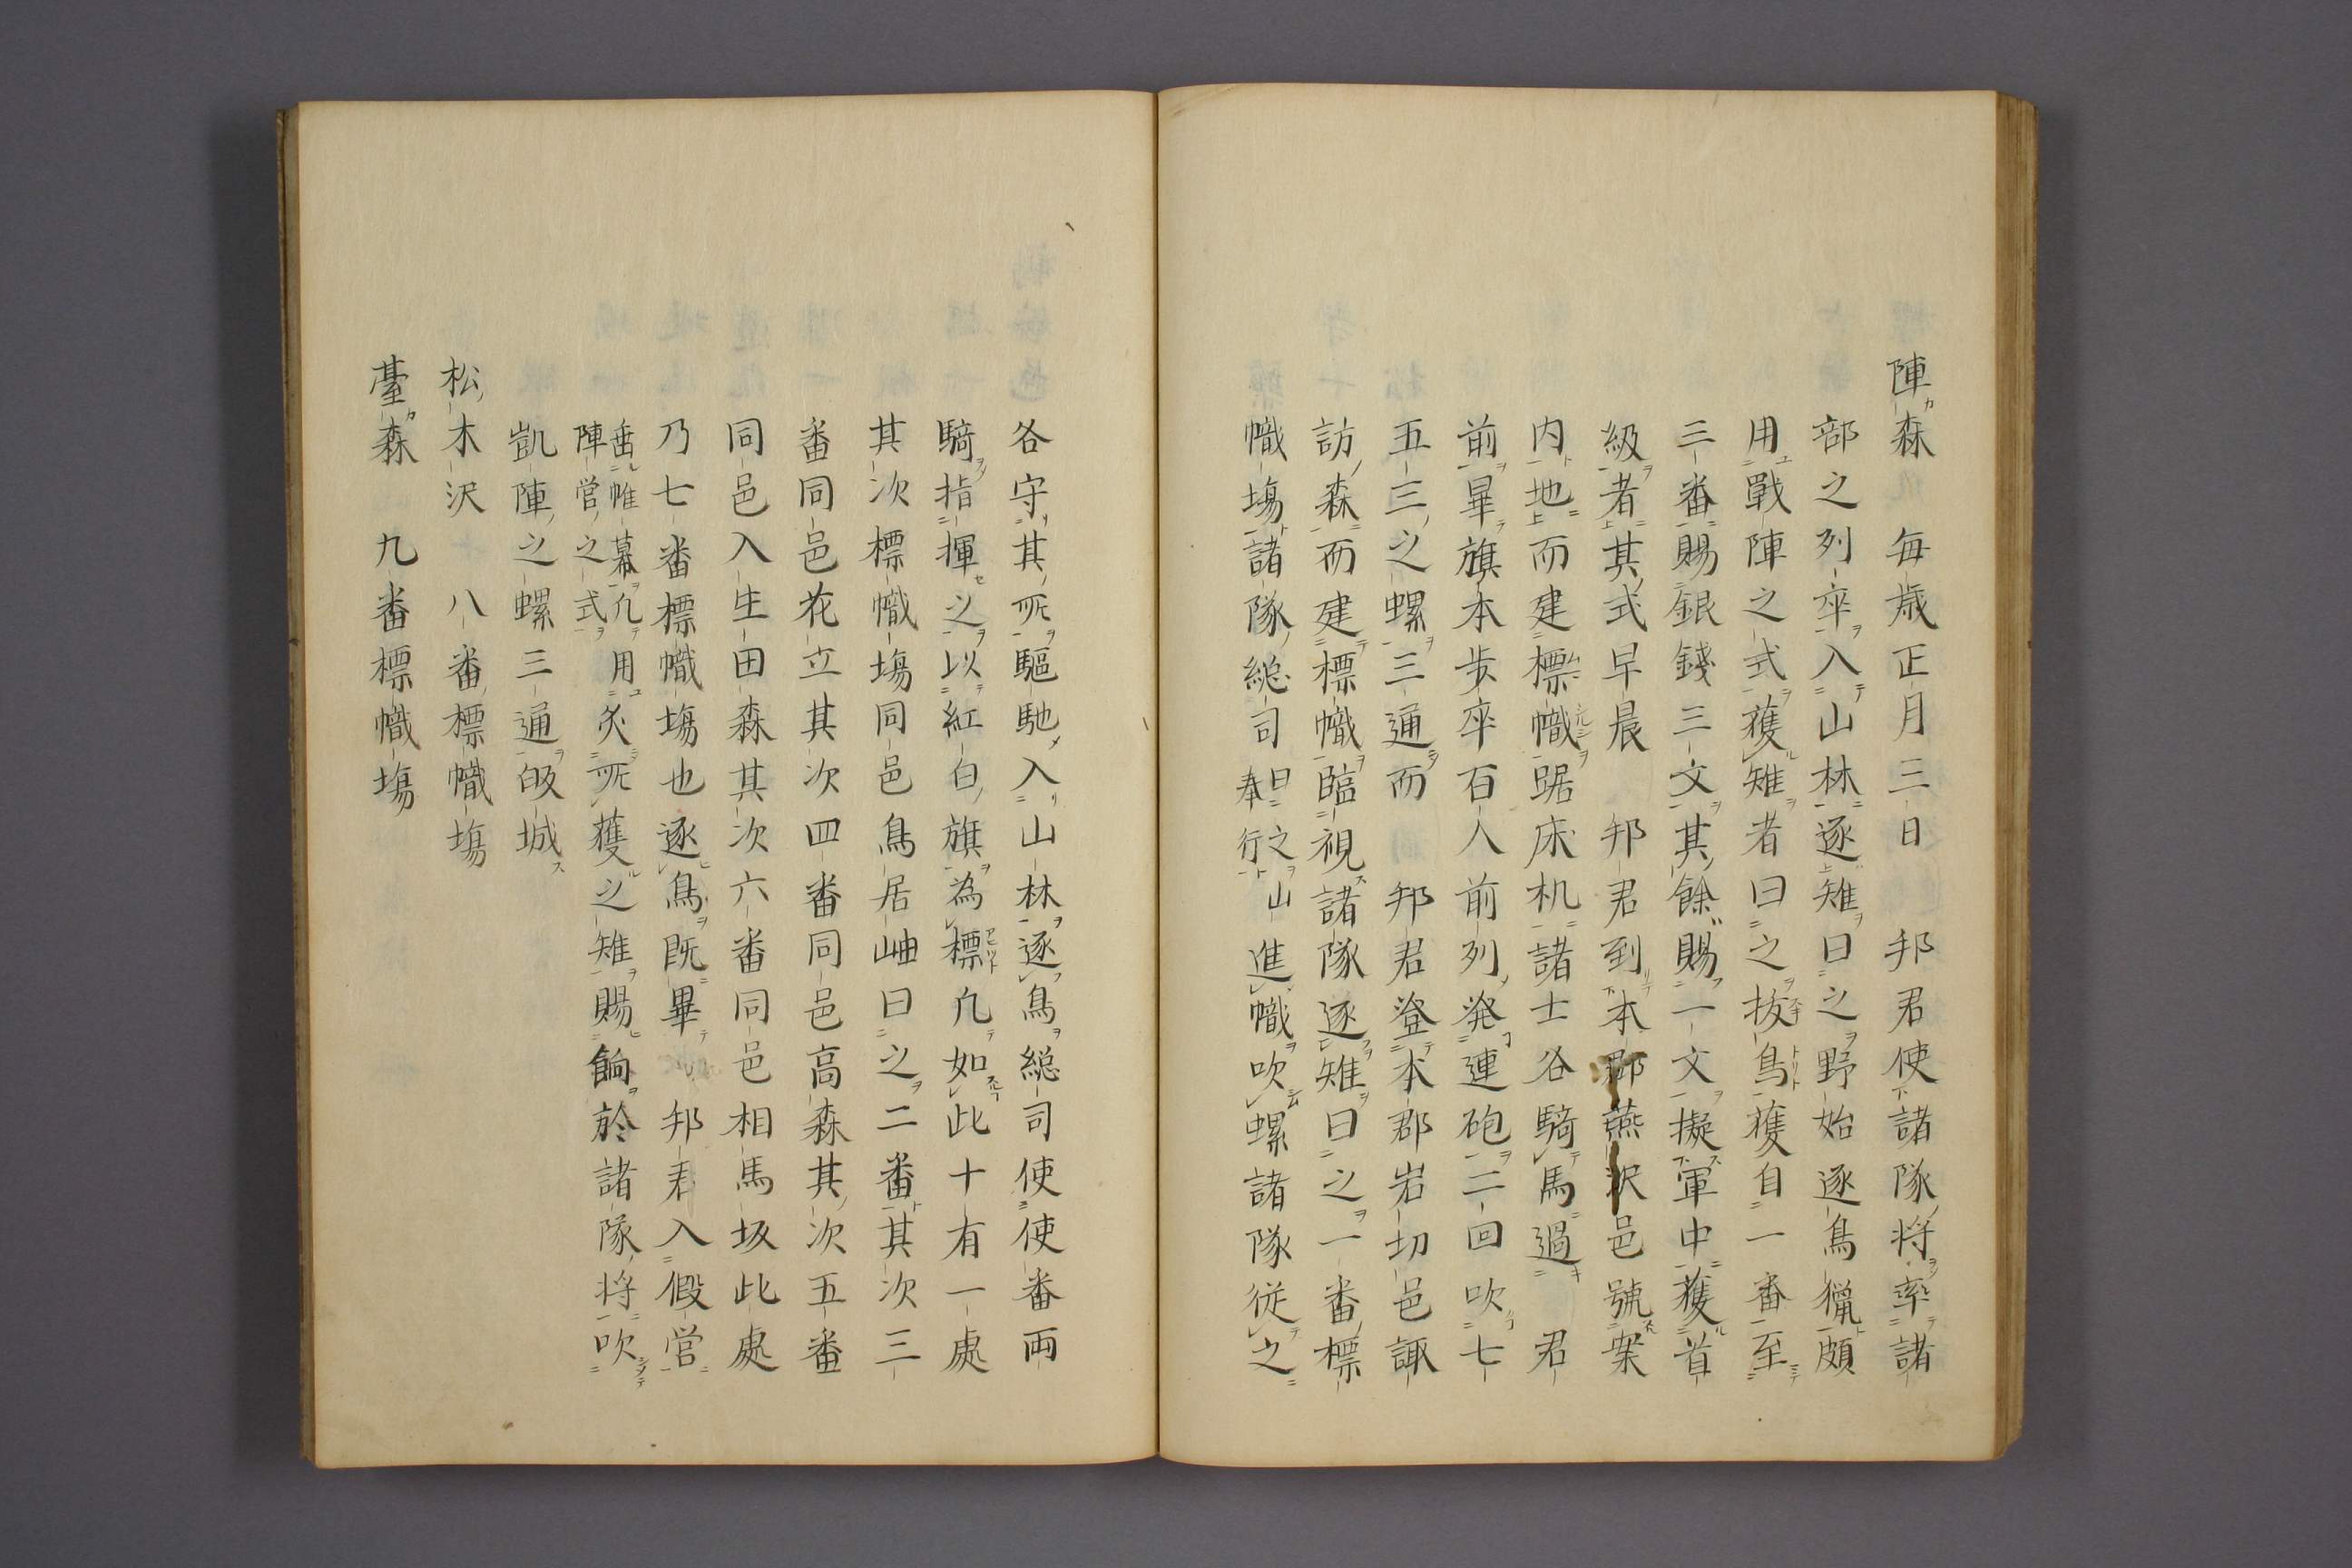 陣森　毎歳正月三日　邦君使諸隊将率諸
部之列卒入山林逐雉曰之野始逐鳥猟頗
用戰陣之式獲雉者曰之抜鳥獲自一番至
三番賜銀錢三文其餘賜一文擬軍中獲首
級者其式早晨　邦君到本郡燕沢邑號案
内地而建標幟踞床机諸士各騎馬過　君
前畢旗本歩卒百人前列発連砲二回吹七
五三之螺三通而　邦君登本郡岩切邑諏
訪森而建標幟臨視諸隊逐雉曰之一番標
幟塲諸隊総司曰之山奉行進幟吹螺諸隊従之
各守其所驅馳入山林逐鳥総司使使番両
騎指揮之以紅白旗為標凡如此十有一處
其次標幟塲同邑鳥居岫曰之二番其次三
番同邑花立其次四番同邑高森其次五番
同邑入生田森其次六番同邑相馬坂此處
乃七番標幟塲也逐鳥既畢　邦君入假営
垂帷幕凡用陣営之式炙所獲之雉賜餉於諸隊将吹
凱陣之螺三通皈城
松木沢　八番標幟塲
臺森　九番標幟塲